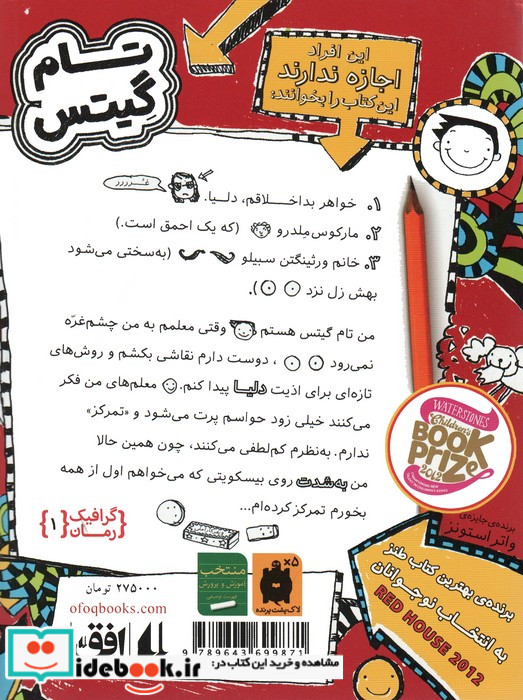 تام
گیتس
این افراد
اجازه ندارند
این کتاب را بخوانند:
غــررررر
۱. خواهر بداخلاقم، دلیا.
۲. مارکوس مِلدرو (که یک احمق است.)
۳. خانم ورثینگتن سبیلو (به‌سختی می‌شود
بهش زل نزد).
من تام گیتس هستم وقتی معلمم به من چشم‌غرّه
نمی‌رود، دوست دارم نقاشی بکشم و روش‌های
تازه‌ای برای اذیت دلیا پیدا کنم. معلم‌های من فکر
می‌کنند خیلی زود حواسم پرت می‌شود و «تمرکز»
ندارم. به‌نظرم کم‌لطفی می‌کنند، چون همین حالا
من به‌شدت روی بیسکویتی که می‌خواهم اول از همه
بخورم تمرکز کرده‌ام...
گرافیک
رمان
{۱}
WATERSTONES
Children's
BOOK
PRIZE
2012
برنده‌ی جایزه‌ی
واتراستونز
برنده‌ی بهترین کتاب طنز
به انتخاب نوجوانان
RED HOUSE 2012
×۵
لاک‌پشت پرنده
منتخب
آموزش و پرورش
۲۷۵۰۰۰ تومان
ofoqbooks.com
افق
9 789643 699871
مشاهده و خرید این کتاب در:
idebook.ir